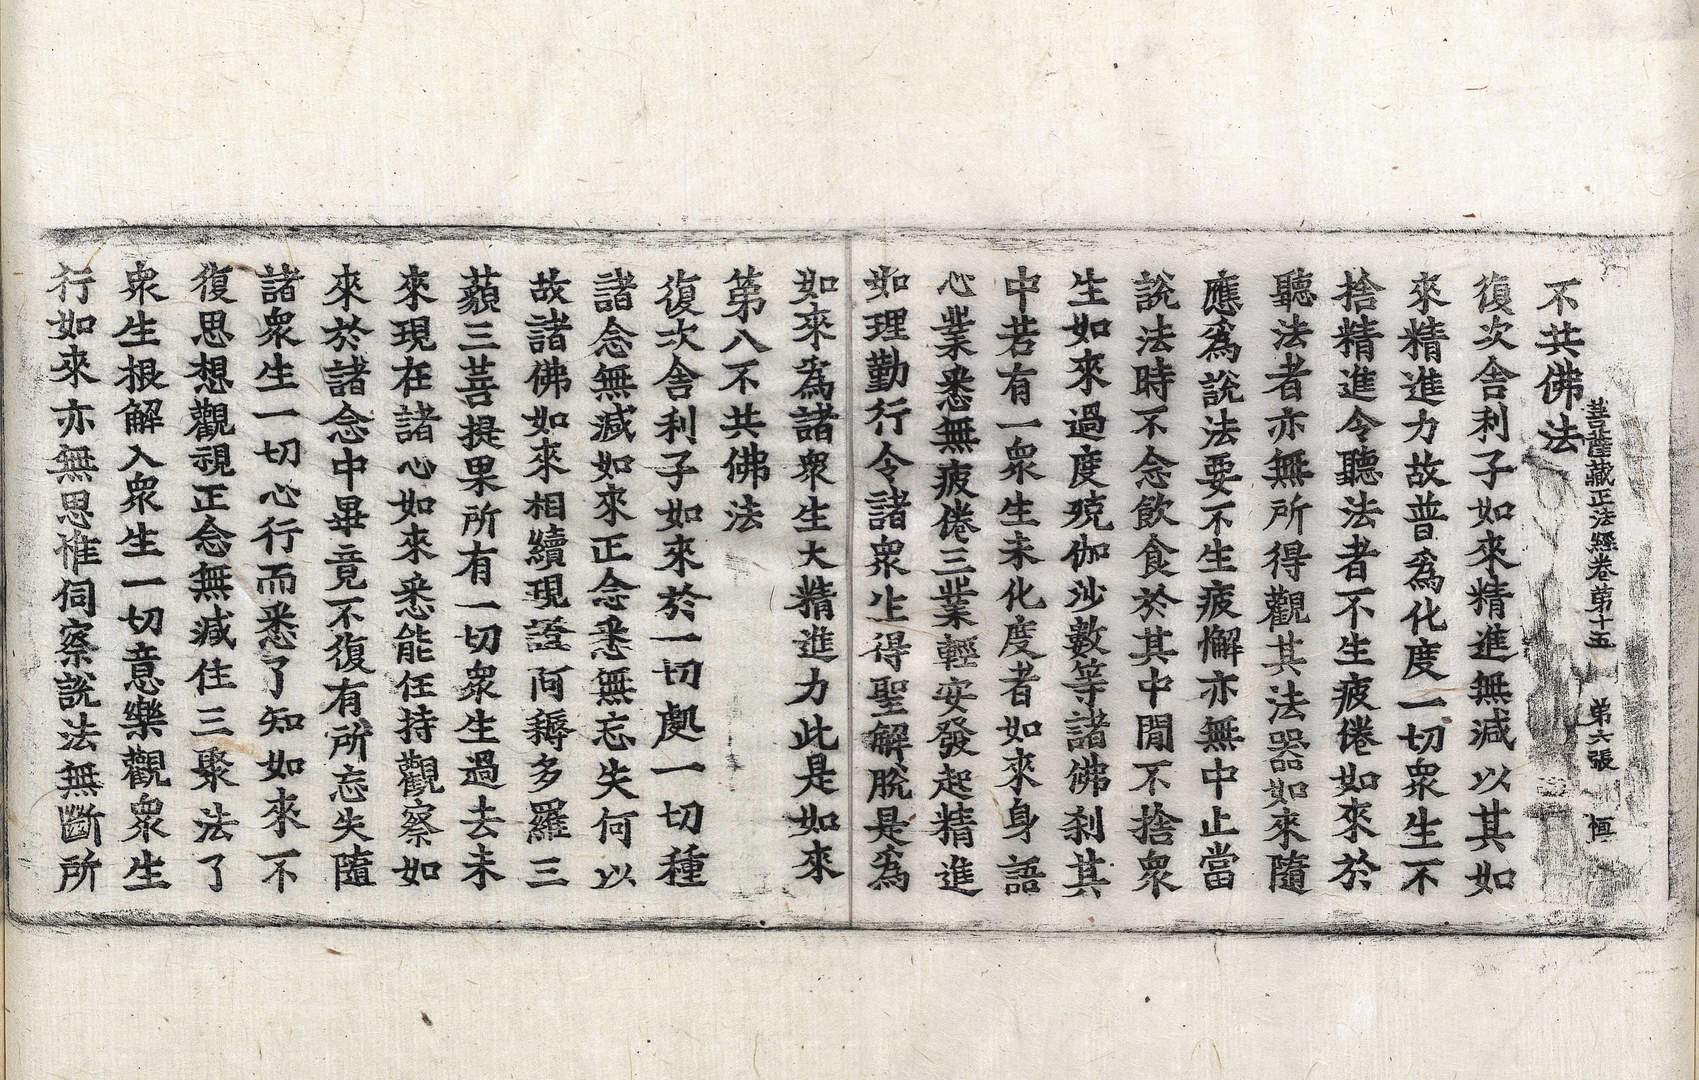 菩薩藏正法經卷第十五　第六張　恒
不共佛法
復次舍利子如來精進無減以其如
來精進力故普爲化度一切衆生不
捨精進令聽法者不生疲倦如來於
聽法者亦無所得觀其法器如來隨
應爲說法要不生疲懈亦無中止當
說法時不念飲食於其中閒不捨衆
生如來過度殑伽沙數等諸佛刹其
中若有一衆生未化度者如來身語
心業悉無疲倦三業輕安發起精進
如理勤行令諸衆生得聖解脫是爲
如來爲諸衆生大精進力此是如來
第八不共佛法
復次舍利子如來於一切處一切種
諸念無減如來正念悉無忘失何以
故諸佛如來相續現證阿耨多羅三
藐三菩提果所有一切衆生過去未
來現在諸心如來悉能任持觀察如
來於諸念中畢竟不復有所忘失隨
諸衆生一切心行而悉了知如來不
復思想觀視正念無減住三聚法了
衆生根解入衆生一切意樂觀衆生
行如來亦無思惟伺察說法無斷所